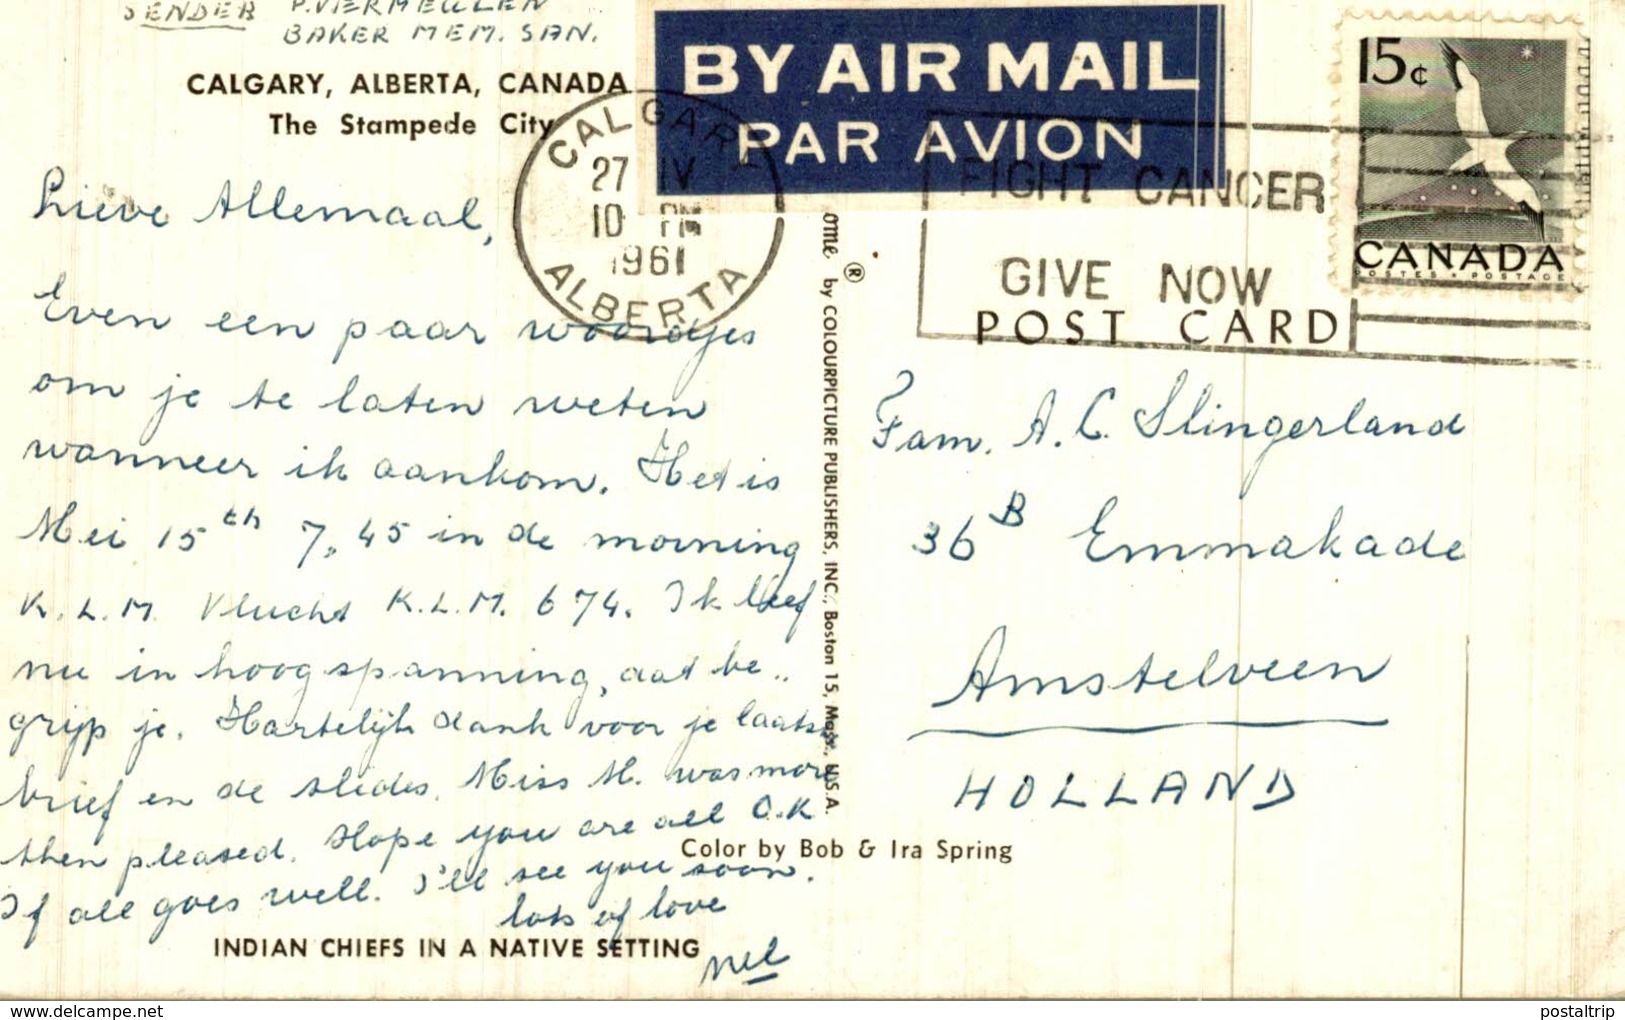 SENDER P. VERMEULEN
BAKER MEM. SAN.
CALGARY, ALBERTA, CANADA
The Stampede City
BY AIR MAIL
PAR AVION
CALGARY
27 IV
10 PM
1961
ALBERTA
FIGHT CANCER
GIVE NOW
15¢
CANADA
POSTES * POSTAGE
POST CARD
Lieve Allemaal,
Even een paar woordjes
om je te laten weten
wanneer ik aankom. Het is
Mei 15th 7,45 in de morning
K.L.M. Vlucht K.L.M. 674. Ik leef
nu in hoogspanning, dat be..
grijp je. Hartelijk dank voor je laatste
brief en de slides. Miss M. was more
then pleased. Hope you are all O.K
If all goes well. I'll see you soon.
lots of love
Nel
by COLOURPICTURE PUBLISHERS, INC., Boston 15, Mass., U.S.A.
®
Fam. A. C. Slingerland
36 B Emmakade
Amstelveen
HOLLAND
Color by Bob & Ira Spring
INDIAN CHIEFS IN A NATIVE SETTING
www.delcampe.net
postaltrip